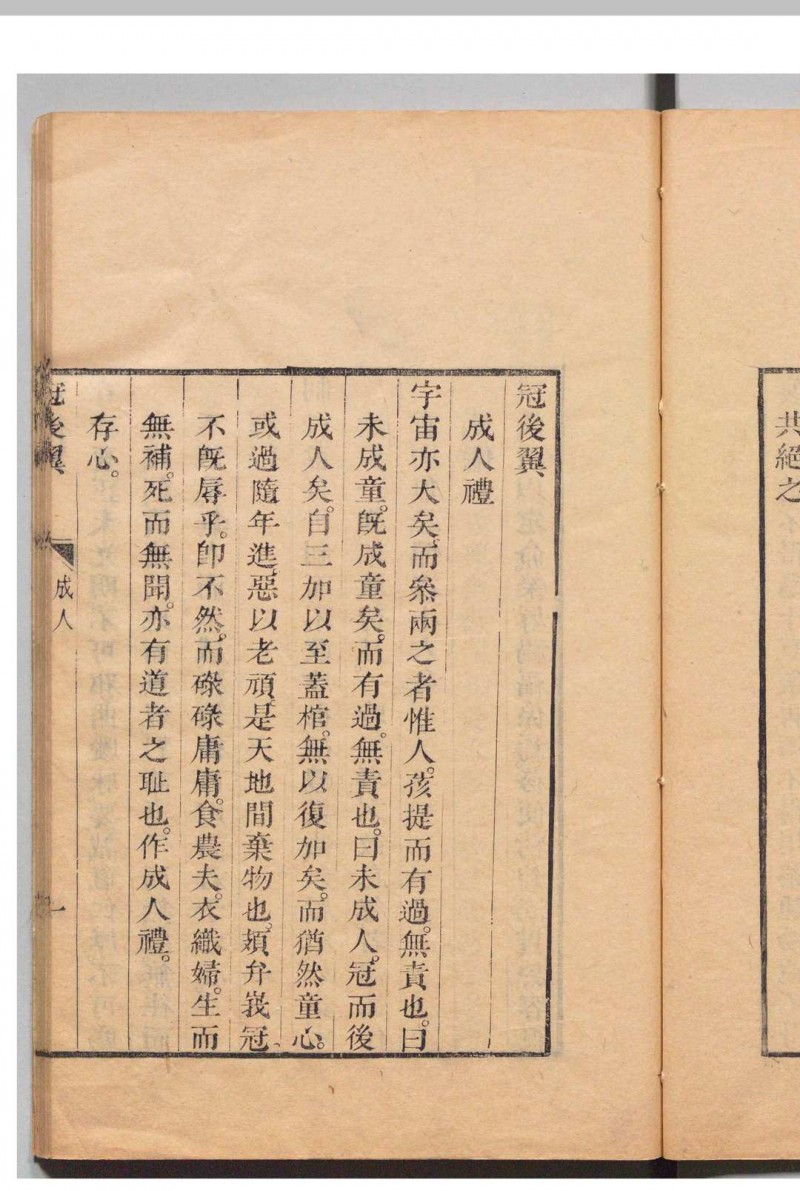 共絕之
冠後翼
成人禮
宇宙亦大矣而叅兩之者惟人。孩提而有過。無責也。曰
未成童。旣成童矣。而有過。無責也。曰未成人。冠而後
成人矣。自三加以至蓋棺。無以復加矣。而猶然童心。
或過隨年進。惡以老頑。是天地間棄物也。頍弁峩冠
不旣辱乎。卽不然。而碌碌庸庸。食農夫。衣織婦。生而
無補。死而無聞。亦有道者之耻也。作成人禮。
存心。
冠後翼 成人 一